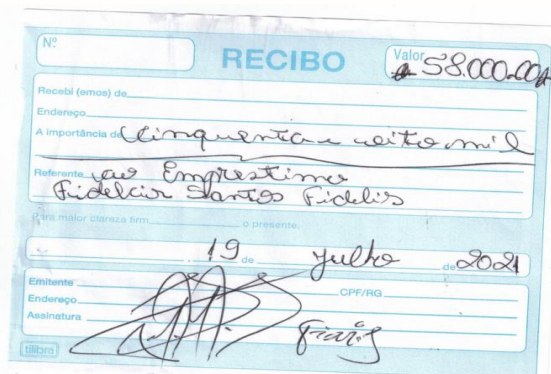 Nº
RECIBO
Valor 58.000,00
Recebi (emos) de
Endereço
A importância de Cinquenta e oito mil
Referente ao Emprestimo
Fidelcir Santos Fidelis
Para maior clareza firm o presente.
19 de Julho de 2021
Emitente CPF/RG
Endereço
Assinatura
tilibra